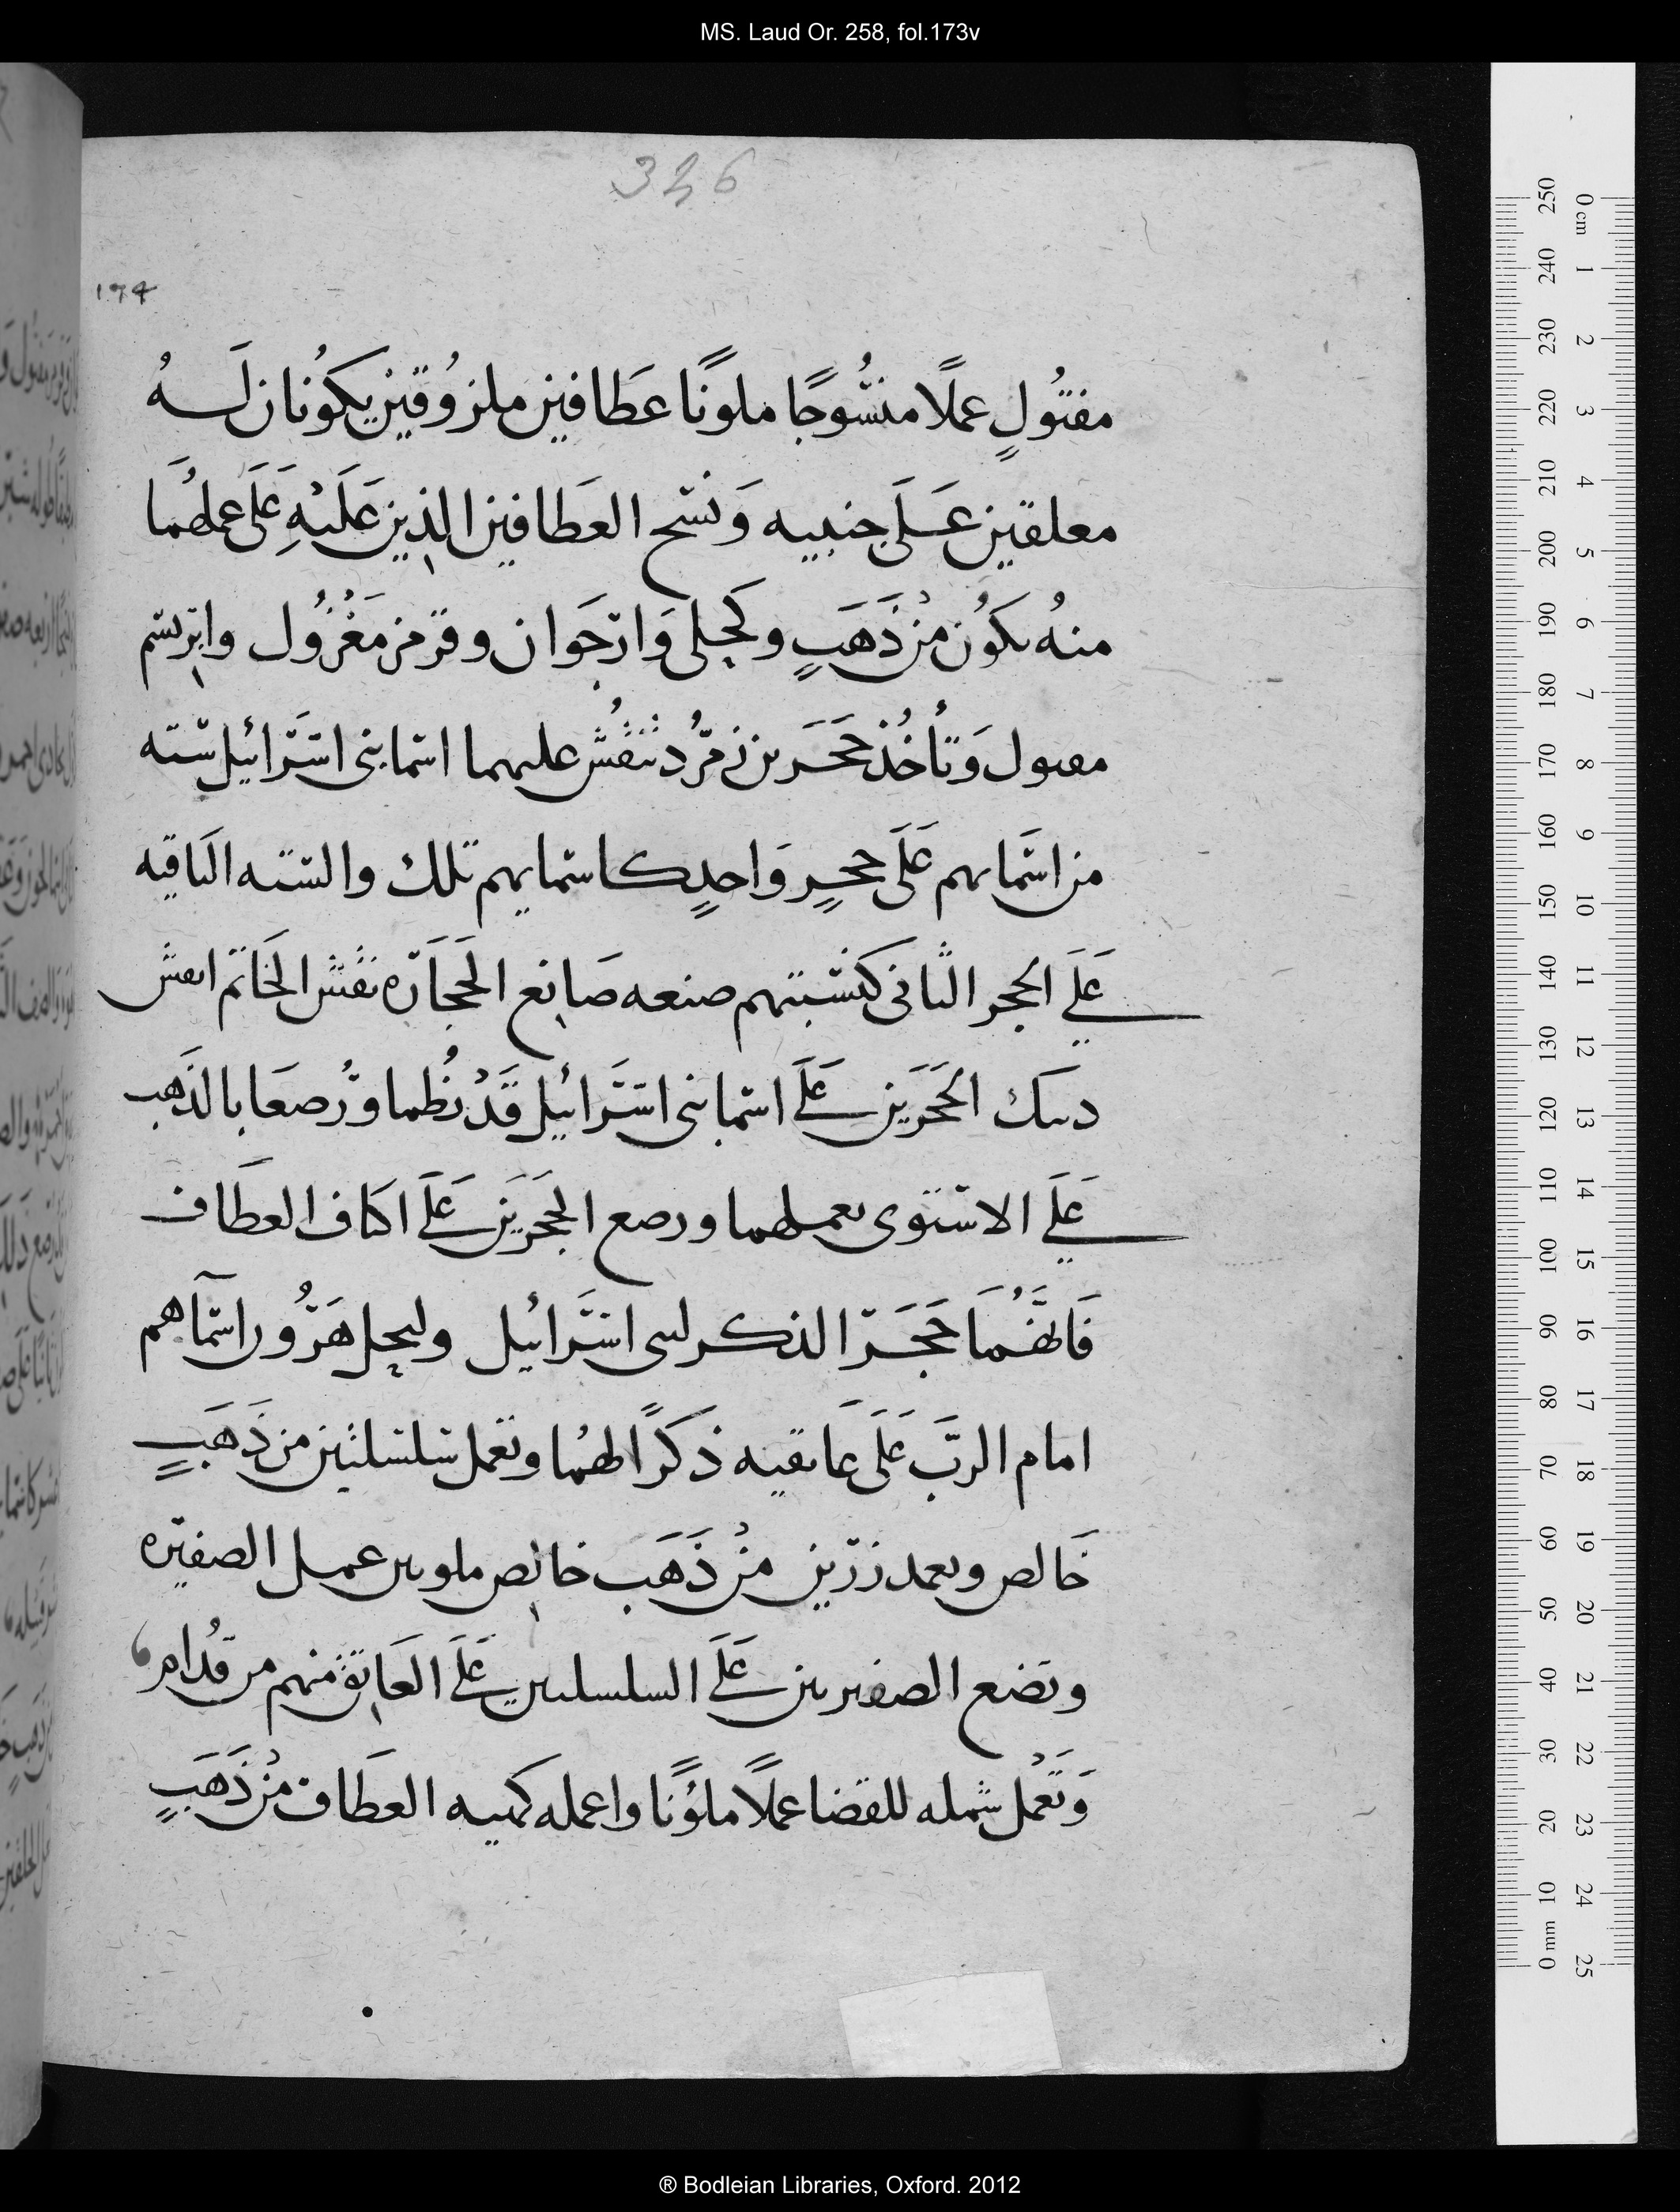 MS. Laud Or. 258, fol.173v
326
174
مفتُولٍ عملًا منشُوجًا ملونًا عَطَافين ملزُوقين يكوُنان لَهُ
معلقين عَلَى جنبيه وَنسَج العَطافين الذين عَلَيْهِ عَلَى عملهُمَا
منهُ يكُون منْ ذَهَبٍ وكحلى وَارجَوان وقرمز مَغْزُول وابرسم
مفتول وَتأخُذ حَجَرين زمرُّد تنقُش عليهما اسما بنى اسَرائيل سته
من اسَمايهم عَلَى حجرٍ وَاحدٍ كاسمايهم تلك والسته الباقيه
عَلَى الحجر الثانى كنسبتهم صنعه صَانع الحجَارَه نقش الخَاتم انقش
ذينك الحَجَرَين عَلَى اسما بنى اسَرائيل قَدْ نُظما وَرُصعَا بالذَهب
عَلَى الاستوى بعملهما ورصع الحجَرَين عَلَى اكتاف العطَاف
فَانهُمَا حَجَرَا الذكر لبنى اسَرائيل وليحمل هَرُون اسمآهم
امام الربَّ عَلَى عَاتقيه ذكرًا لهُما وتعمل سلسلتين من ذَهَبٍ
خَالص وتعمد زرّين منْ ذَهَب خالص ملوين عمل الضفيره
وتضع الضفيرتين عَلَى السلسلتين عَلَى العَاتق منهم من قدُام
وَتَعْمل شمله للقضا عملًا ملوُنًا واعمله كهيه العطَاف منْ ذَهَبٍ
250 240 230 220 210 200 190 180 170 160 150 140 130 120 110 100 90 80 70 60 50 40 30 20 10 0 mm
0 cm 1 2 3 4 5 6 7 8 9 10 11 12 13 14 15 16 17 18 19 20 21 22 23 24 25
® Bodleian Libraries, Oxford. 2012